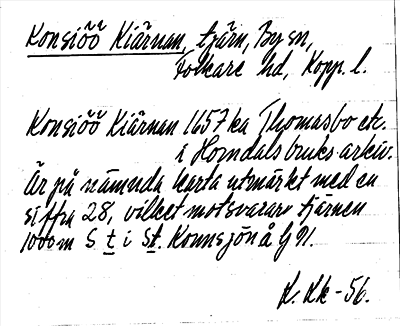 Konsiöö Kiärnan, tjärn, By sn,
Folkare hd, Kopp. l.
Konsiöö Kiärnan 1657 ka Thomasbo etc.
i Horndals bruks arkiv.
Är på nämnda karta utmärkt med en
siffra 28, vilket motsvarar tjärnen
1000 m S t i St. Konnsjön å Gj 91.